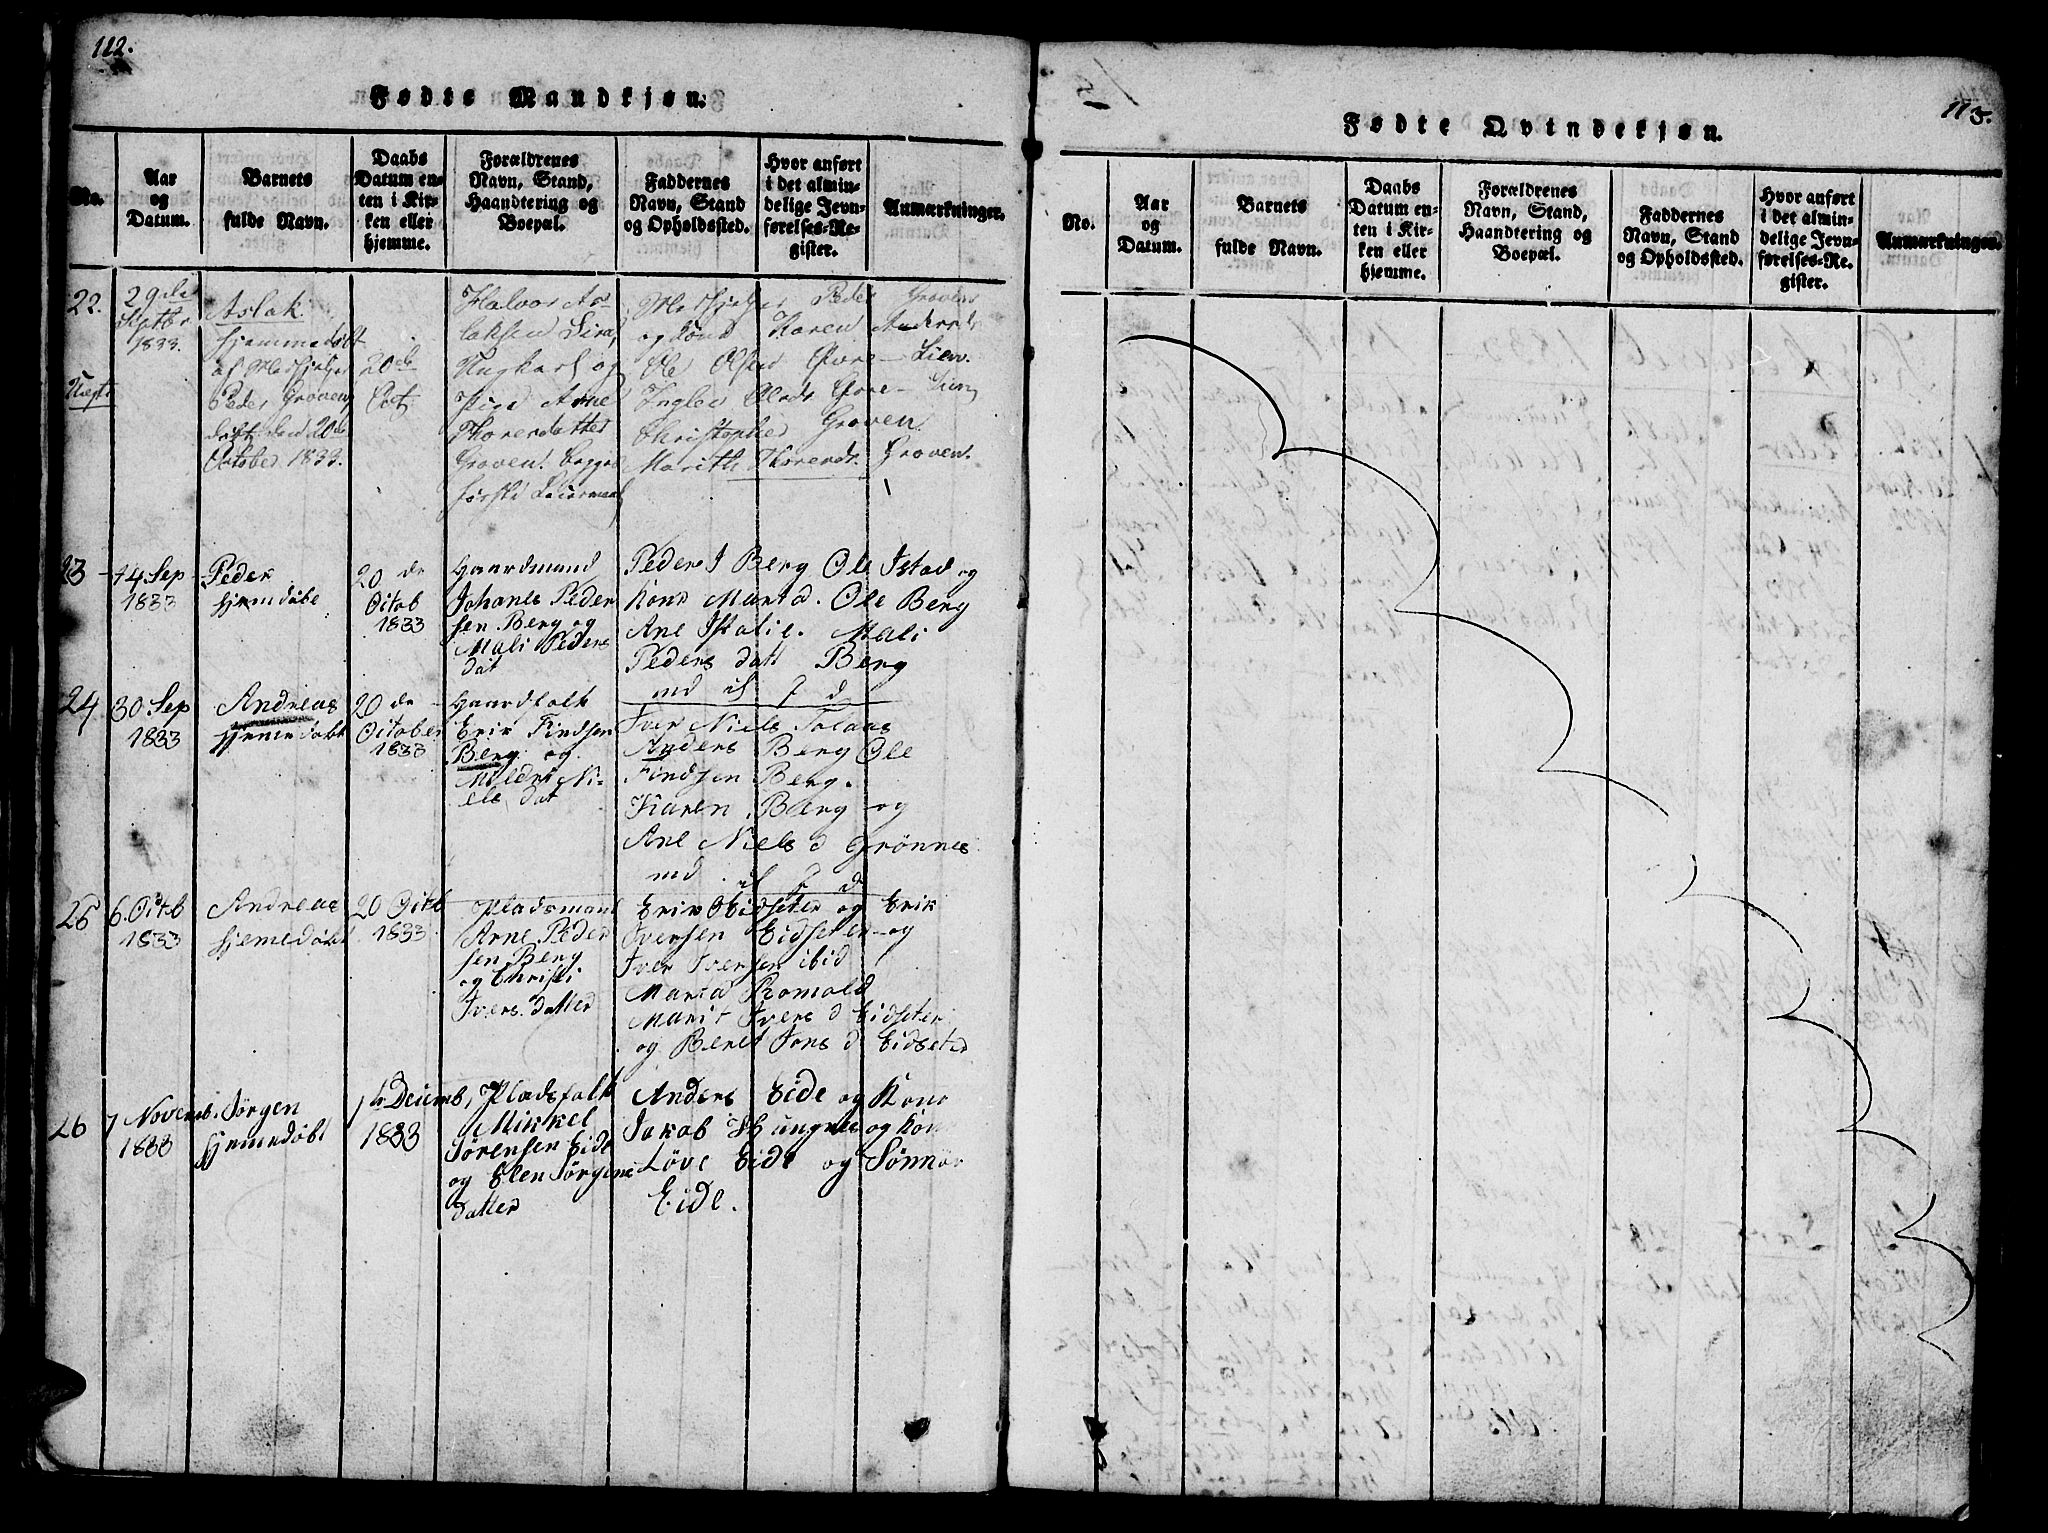 112.
Fødte Mandkjøn.
No.
Aar
og
Datum.
Barnets
fulde Navn.
Daabs
Datum en-
ten i Kir-
ken eller
hjemme.
Forældrenes
Navn, Stand,
Haandtering og
Boepæl.
Faddernes
Navn, Stand
og Opholdssted.
Hvor anført
i det almin-
delige Jevn-
førelses-Re-
gister.
Anmærkninger.
22.
29de
Septbr
1833.
Aslak.
hjemmedøbt
af
Peder Groven,
døbt den 20de
October 1833.
20de
Oct
Halvor As-
laksen Lira,
Ungkarl og
Pige Arne
Thoresdatter
Groven. begges
første Leiermaal
Peder Groven
og Kone Karen Andersd.
Ole Olsen Øvre-Lien.
Inglev Olsdr Øvre-Lien
Christopher Groven
Marith Thoresdr. Groven.
23
14 Sep
1833
Peder
hjemdøbt
20 de
Octob
1833
Gaardmand
Johanes Peder
sen Berg og
Mali Peders
dat
Peder J Berg Ole Istad og
Kone Marta. Ole Berg
Ane Mali
Peders datt Berg
24
30 Sep
1833
Andreas
hjemedøbt
20 de
October
1833
Gaardfolk
Erik Findsen
Berg og
Mildri Ni-
els dat
Iver Niels
Anders Berg Ole
Findsen Berg.
Karen Berg og
Ane Niels d Grønnes
25
6. Octb
1833
Andreas
hjemedøbt
20 Octb
1833
Pladsmand
Arne Peder
sen Berg
og Christi
Ivers datter
Erik Eidseter og Erik
Iversen Eidseter og
Iver Iversen ibid
Marta Romold
Marit Ivers d Eidseter
og Beret Jons d Eidseter
26
7 Novemb.
1833
Jørgen
hjemedøbt
1ste Decemb,
1833
Pladsfolk
Mikkel
Sørensen Eide
og Elen Jørgens
datter
Anders Eide og Kone
Jakob Hungnes og Kone
Løve Eide og Sønnør
Eide.
113.
Fødte Qvindekjøn.
No.
Aar
og
Datum.
Barnets
fulde Navn.
Daabs
Datum en-
ten i Kir-
ken eller
hjemme.
Forældrenes
Navn, Stand,
Haandtering og
Boepæl.
Faddernes
Navn, Stand
og Opholdssted.
Hvor anført
i det almin-
delige Jevn-
førelses-Re-
gister.
Anmærkninger.